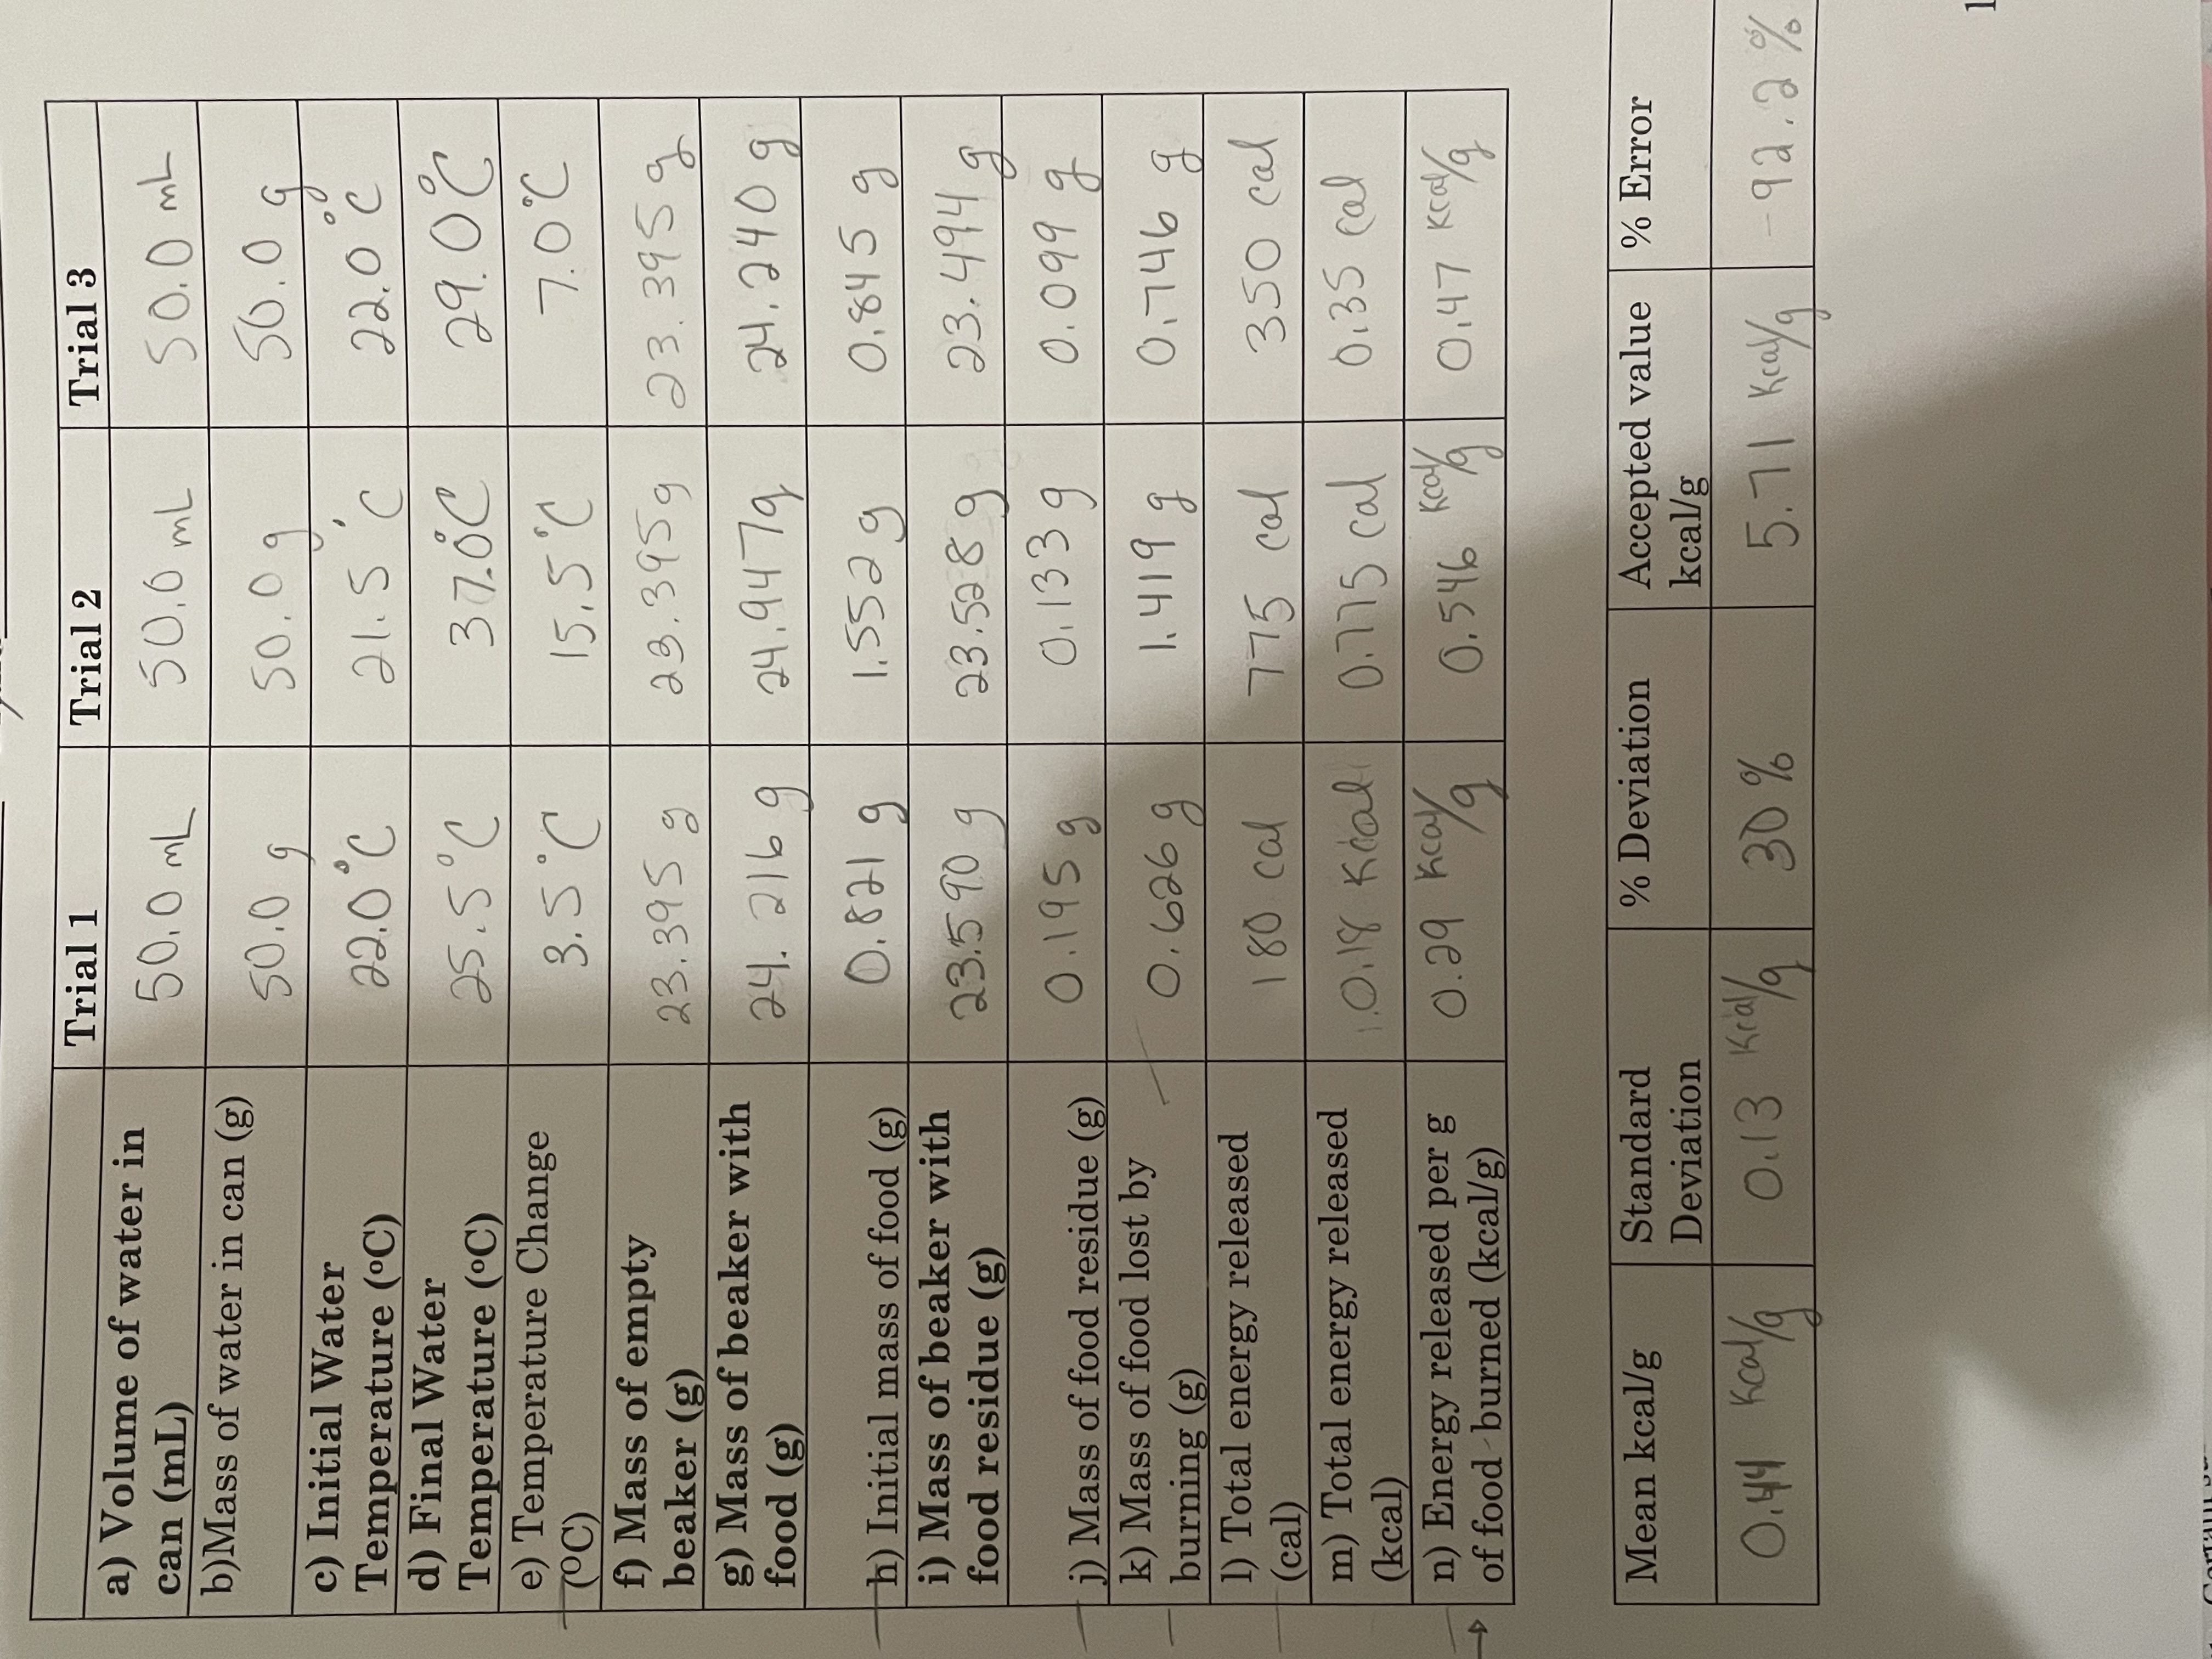 Trial 1 Trial 2 Trial 3
a) Volume of water in can (mL) 50.0 mL 50.0 mL 50.0 mL
b)Mass of water in can (g) 50.0 g 50.0 g 50.0 g
c) Initial Water Temperature (°C) 22.0°C 21.5°C 22.0°C
d) Final Water Temperature (°C) 25.5°C 37.0°C 29.0°C
e) Temperature Change (°C) 3.5°C 15.5°C 7.0°C
f) Mass of empty beaker (g) 23.395 g 23.395g 23.395 g
g) Mass of beaker with food (g) 24.216 g 24.947g 24.240 g
h) Initial mass of food (g) 0.821 g 1.552 g 0.845 g
i) Mass of beaker with food residue (g) 23.590 g 23.528 g 23.494 g
j) Mass of food residue (g) 0.195 g 0.133 g 0.099 g
k) Mass of food lost by burning (g) 0.626 g 1.419 g 0.746 g
l) Total energy released (cal) 180 cal 775 cal 350 cal
m) Total energy released (kcal) 0.18 Kcal 0.775 cal 0.35 cal
n) Energy released per g of food burned (kcal/g) 0.29 Kcal/g 0.546 Kcal/g 0.47 Kcal/g
Mean kcal/g Standard Deviation % Deviation Accepted value kcal/g % Error
0.44 Kcal/g 0.13 Kcal/g 30% 5.71 Kcal/g -92.2%
1